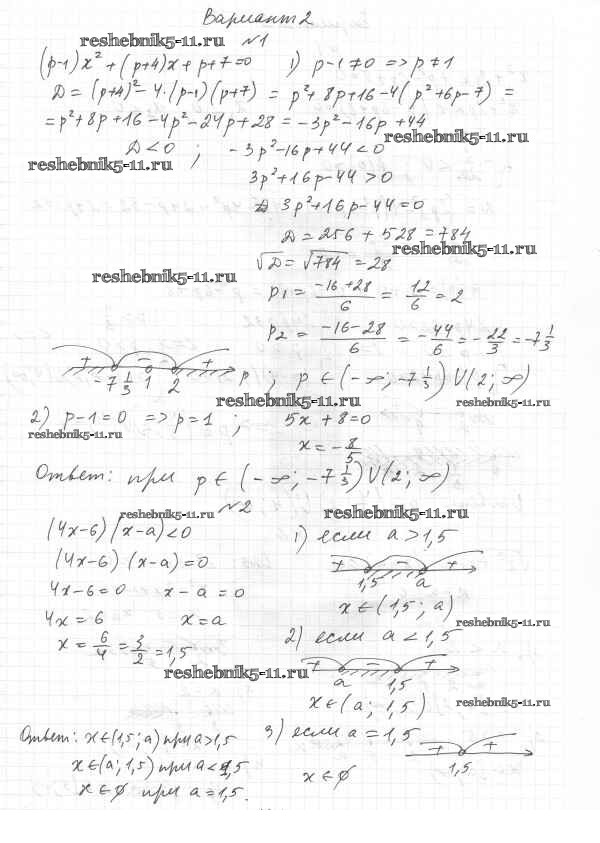 Вариант 2
reshebnik5-11.ru №1
(p-1)x² + (p+4)x + p+7=0 1) p-1≠0 => p≠1
D = (p+4)² - 4·(p-1)(p+7) = p²+8p+16-4(p²+6p-7) =
= p²+8p+16-4p²-24p+28 = -3p²-16p+44
reshebnik5-11.ru
D<0 ; -3p²-16p+44<0
reshebnik5-11.ru
3p²+16p-44>0
3p²+16p-44=0
D = 256 + 528 = 784
reshebnik5-11.ru
√D = √784 = 28
reshebnik5-11.ru
p1 = (-16+28)/6 = 12/6 = 2
p2 = (-16-28)/6 = -44/6 = -22/3 = -7 1/3
+ - +
-7 1/3 1 2 p ; p ∈ (-∞; -7 1/3) U (2; ∞)
reshebnik5-11.ru reshebnik5-11.ru
2) p-1=0 => p=1 ; 5x+8=0
reshebnik5-11.ru
x = -8/5
Ответ: при p ∈ (-∞; -7 1/3) U (2; ∞)
reshebnik5-11.ru №2 reshebnik5-11.ru
(4x-6)(x-a)<0 1) если a>1,5
(4x-6)(x-a)=0
+ - +
1,5 a
4x-6=0 x-a=0
x∈(1,5; a)
4x=6 x=a
reshebnik5-11.ru
x = 6/4 = 3/2 = 1,5
2) если a<1,5
+ - +
reshebnik5-11.ru
a 1,5
x∈(a; 1,5)
reshebnik5-11.ru
Ответ: x∈(1,5; a) при a>1,5
3) если a=1,5
+ +
1,5
x∈(a; 1,5) при a<1,5
x∈∅
x∈∅ при a=1,5.